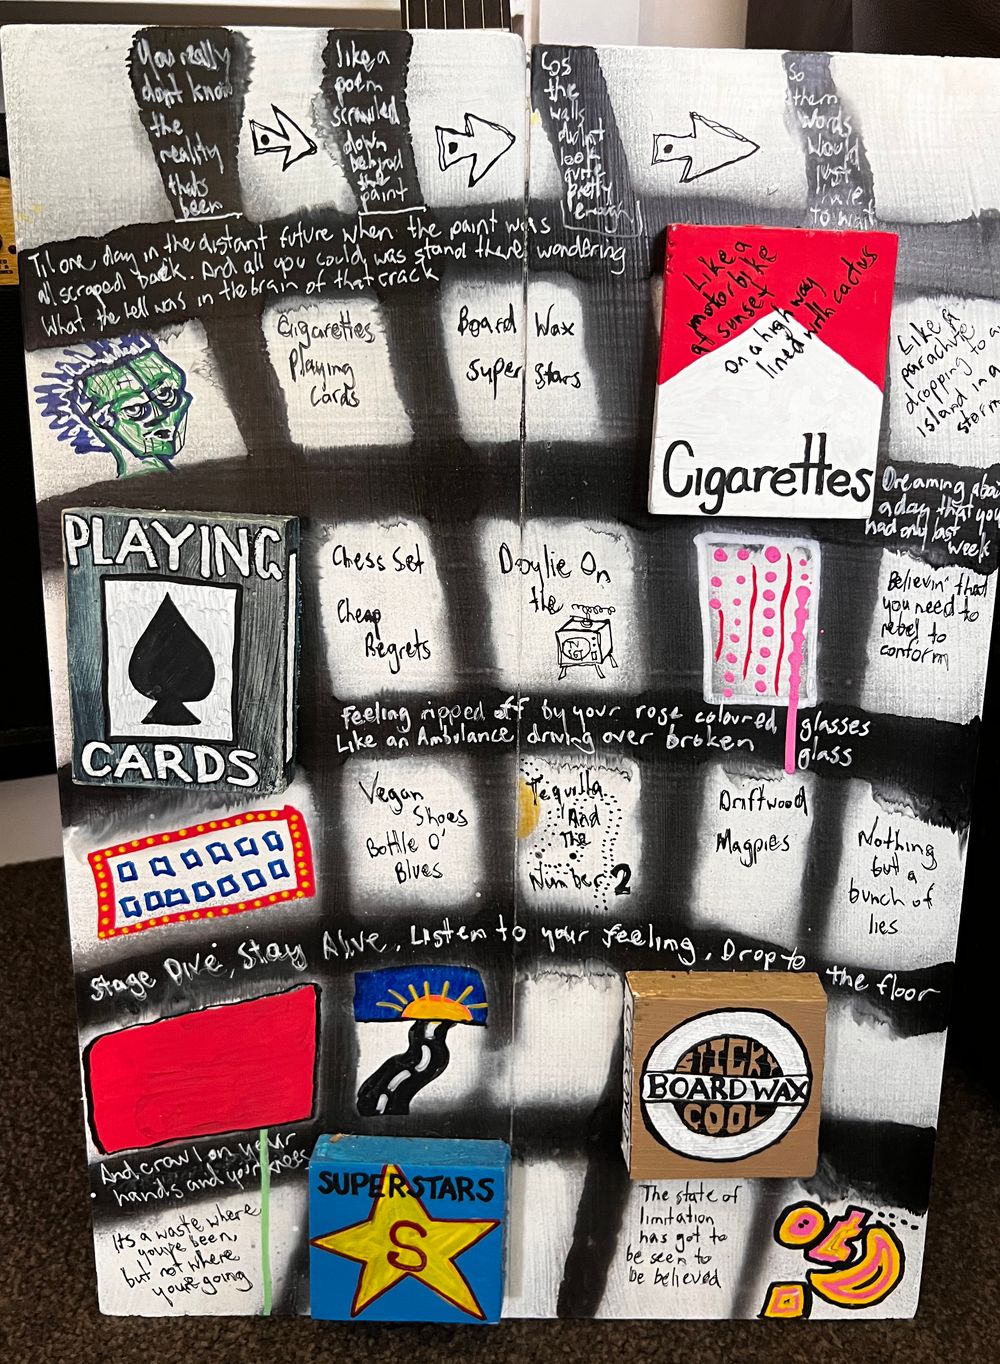 You really
don't know
the
reality
thats
been
like a
poem
scrawled
down
behind
the
paint
Cos
the
walls
didnt
look
quite
pretty
enough
So
them
words
would
just
have
to wait
Til one day in the distant future when the paint was
all scraped back. And all you could was stand there wondering
What the hell was in the brain of that crack
Cigarettes
Playing
Cards
Board Wax
Super Stars
Like a
motorbyke
at sunset
on a high way
lined with cactus
Cigarettes
Like a
parachute
dropping to a
island in a
storm
Dreaming about
a day that you
had only last
week
PLAYING
CARDS
Chess Set
Cheap
Regrets
Doylie On
the
TV
Believin' that
you need to
rebel to
conform
Feeling ripped off by your rose coloured glasses
Like an Ambulance driving over broken glass
Vegan
Shoes
Bottle O'
Blues
Tequilla
And
The
Number 2
Driftwood
Magpies
Nothing
but a
bunch of
lies
Stage Dive, Stay Alive, Listen to your feeling, Drop to the floor
STICKY
BOARD WAX
COOL
And crawl on your
hands and your knees
SUPERSTARS
S
Its a waste where
you've been,
but not where
you're going
The state of
limitation
has got to
be seen to
be believed